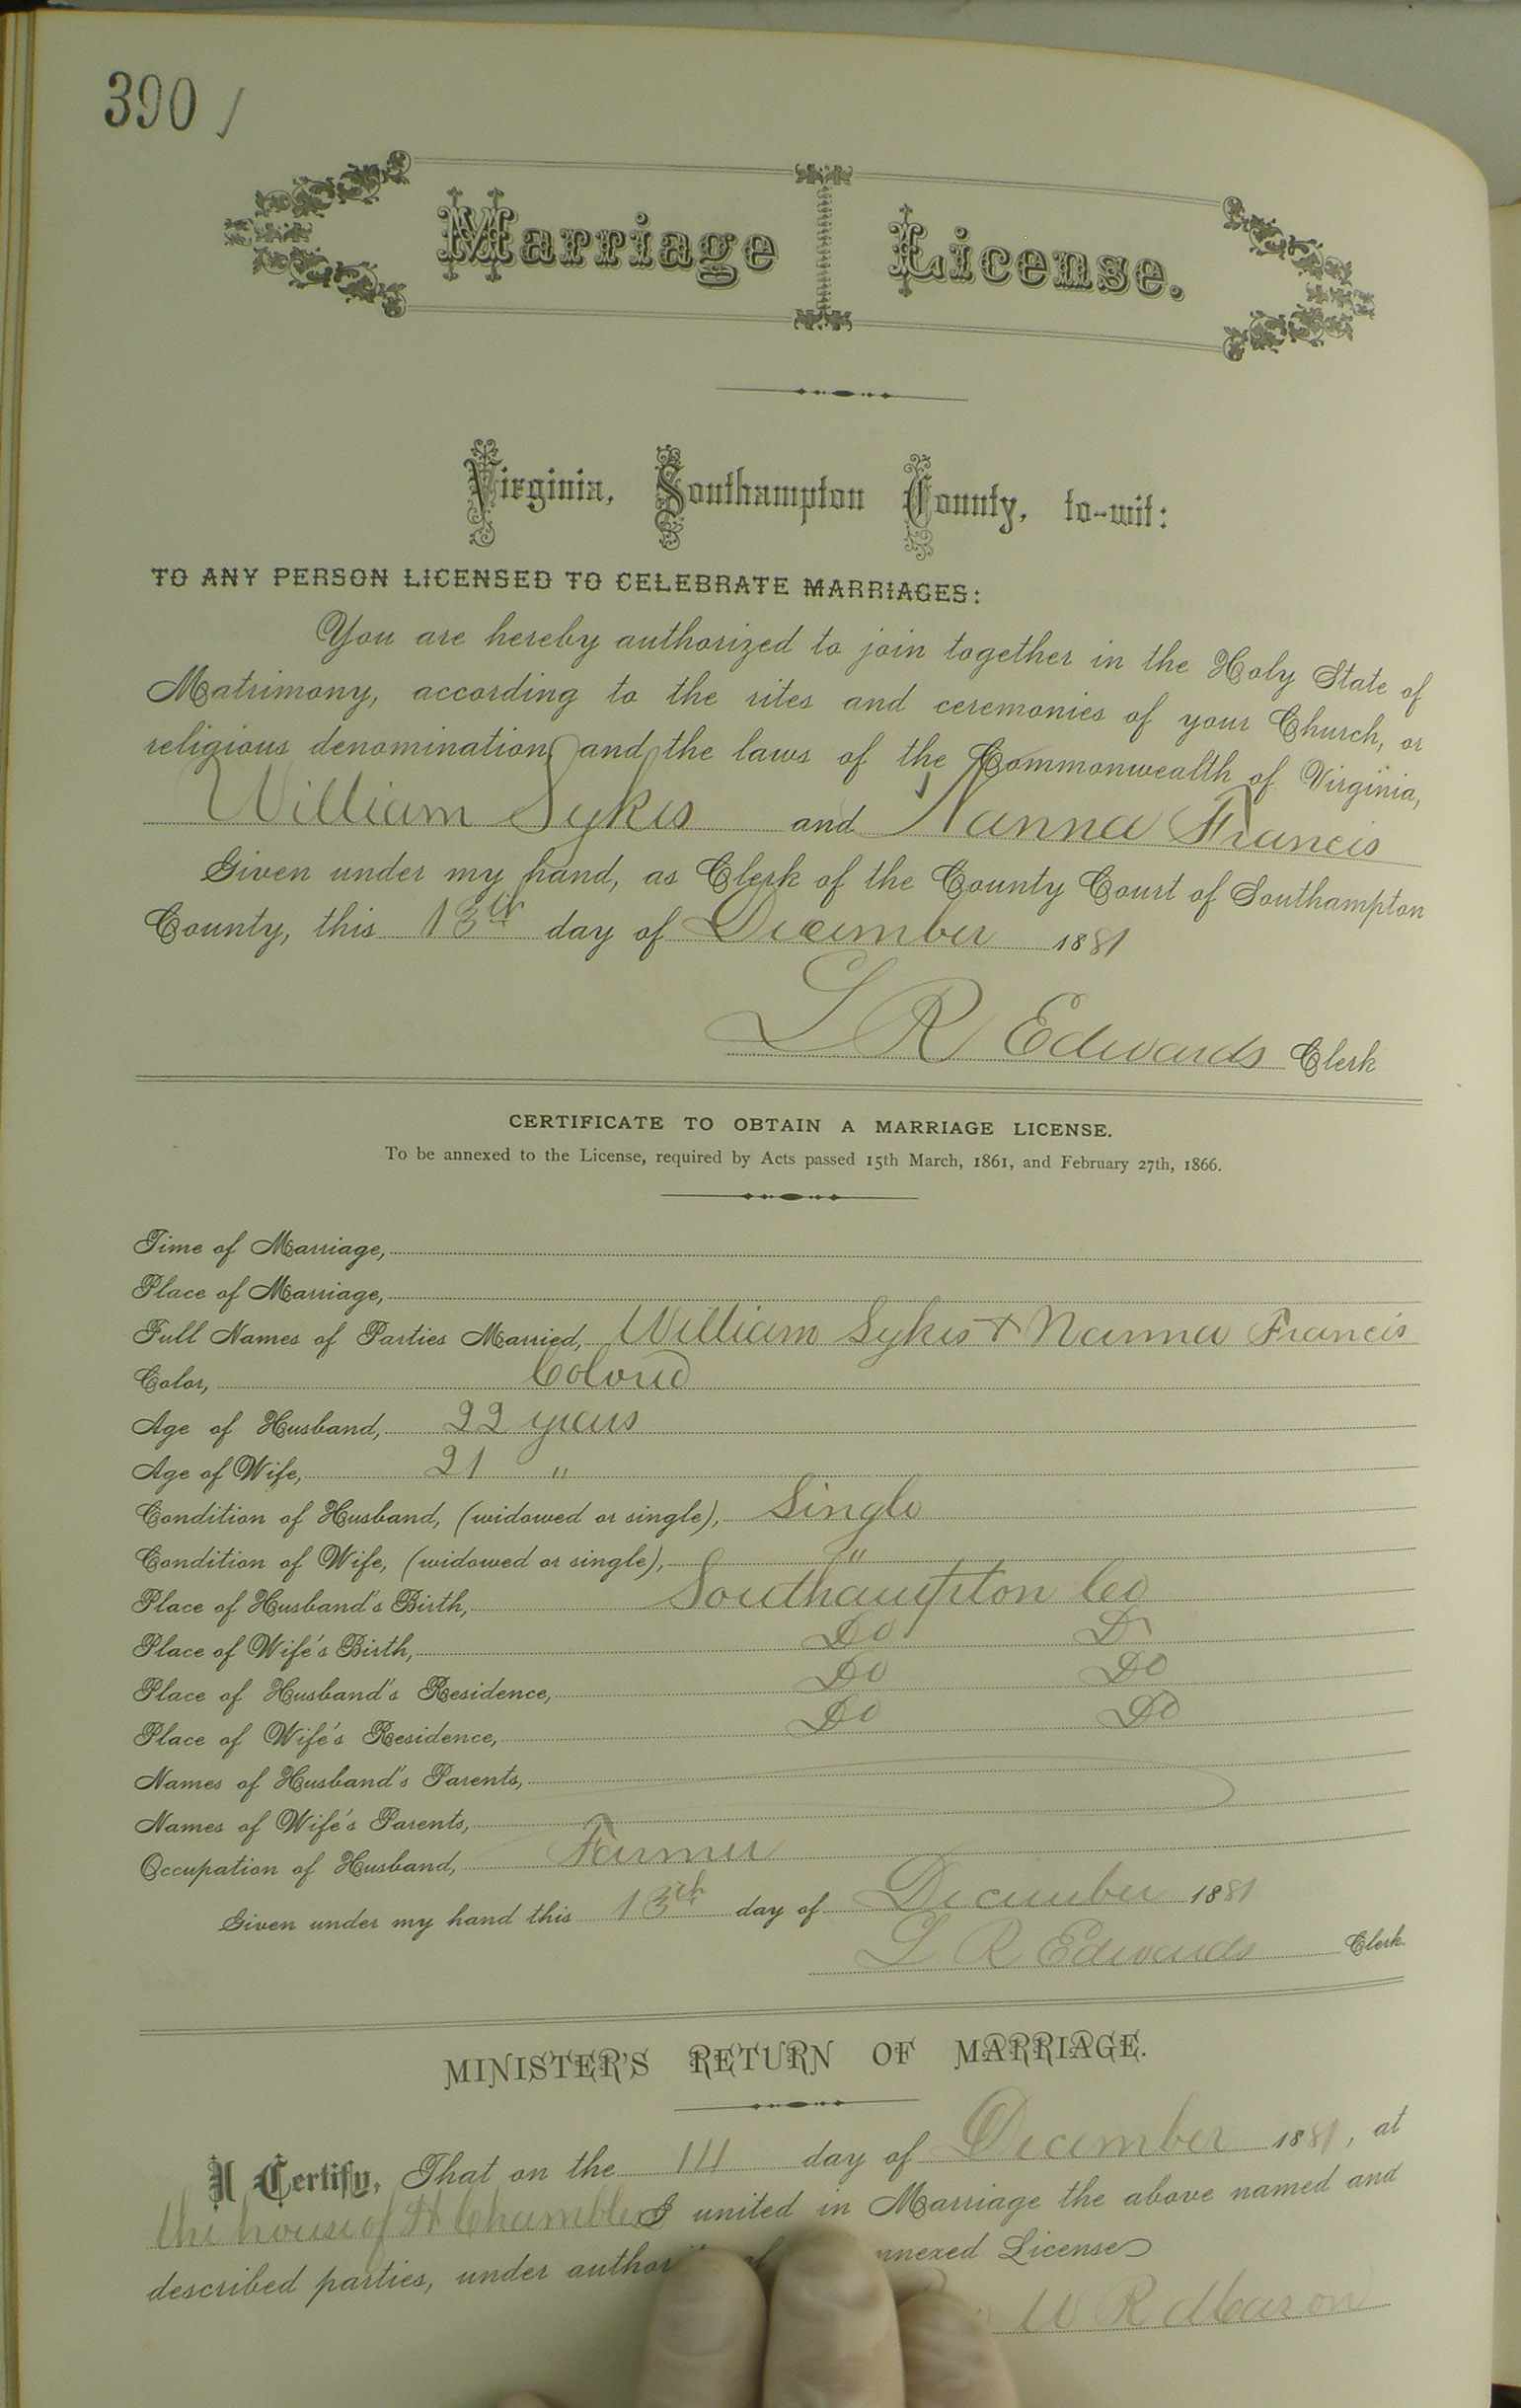 390 /
Marriage License.
Virginia, Southampton County, to-wit:
TO ANY PERSON LICENSED TO CELEBRATE MARRIAGES:
You are hereby authorized to join together in the Holy State of
Matrimony, according to the rites and ceremonies of your Church, or
religious denomination, and the laws of the Commonwealth of Virginia,
William Sykes and Nanna Francis
Given under my hand, as Clerk of the County Court of Southampton
County, this 13th day of December 1881
L R Edwards Clerk
CERTIFICATE TO OBTAIN A MARRIAGE LICENSE.
To be annexed to the License, required by Acts passed 15th March, 1861, and February 27th, 1866.
Time of Marriage,
Place of Marriage,
Full Names of Parties Married, William Sykes + Nanna Francis
Color, Colored
Age of Husband, 22 years
Age of Wife, 21 "
Condition of Husband, (widowed or single), Single
Condition of Wife, (widowed or single), "
Place of Husband's Birth, Southampton Co
Place of Wife's Birth, Do Do
Place of Husband's Residence, Do Do
Place of Wife's Residence, Do Do
Names of Husband's Parents,
Names of Wife's Parents,
Occupation of Husband, Farmer
Given under my hand this 13th day of December 1881
L R Edwards Clerk
MINISTER'S RETURN OF MARRIAGE.
I Certify, That on the day of December 1881, at
the house of H I united in Marriage the above named and
described parties, under License
W R Mason